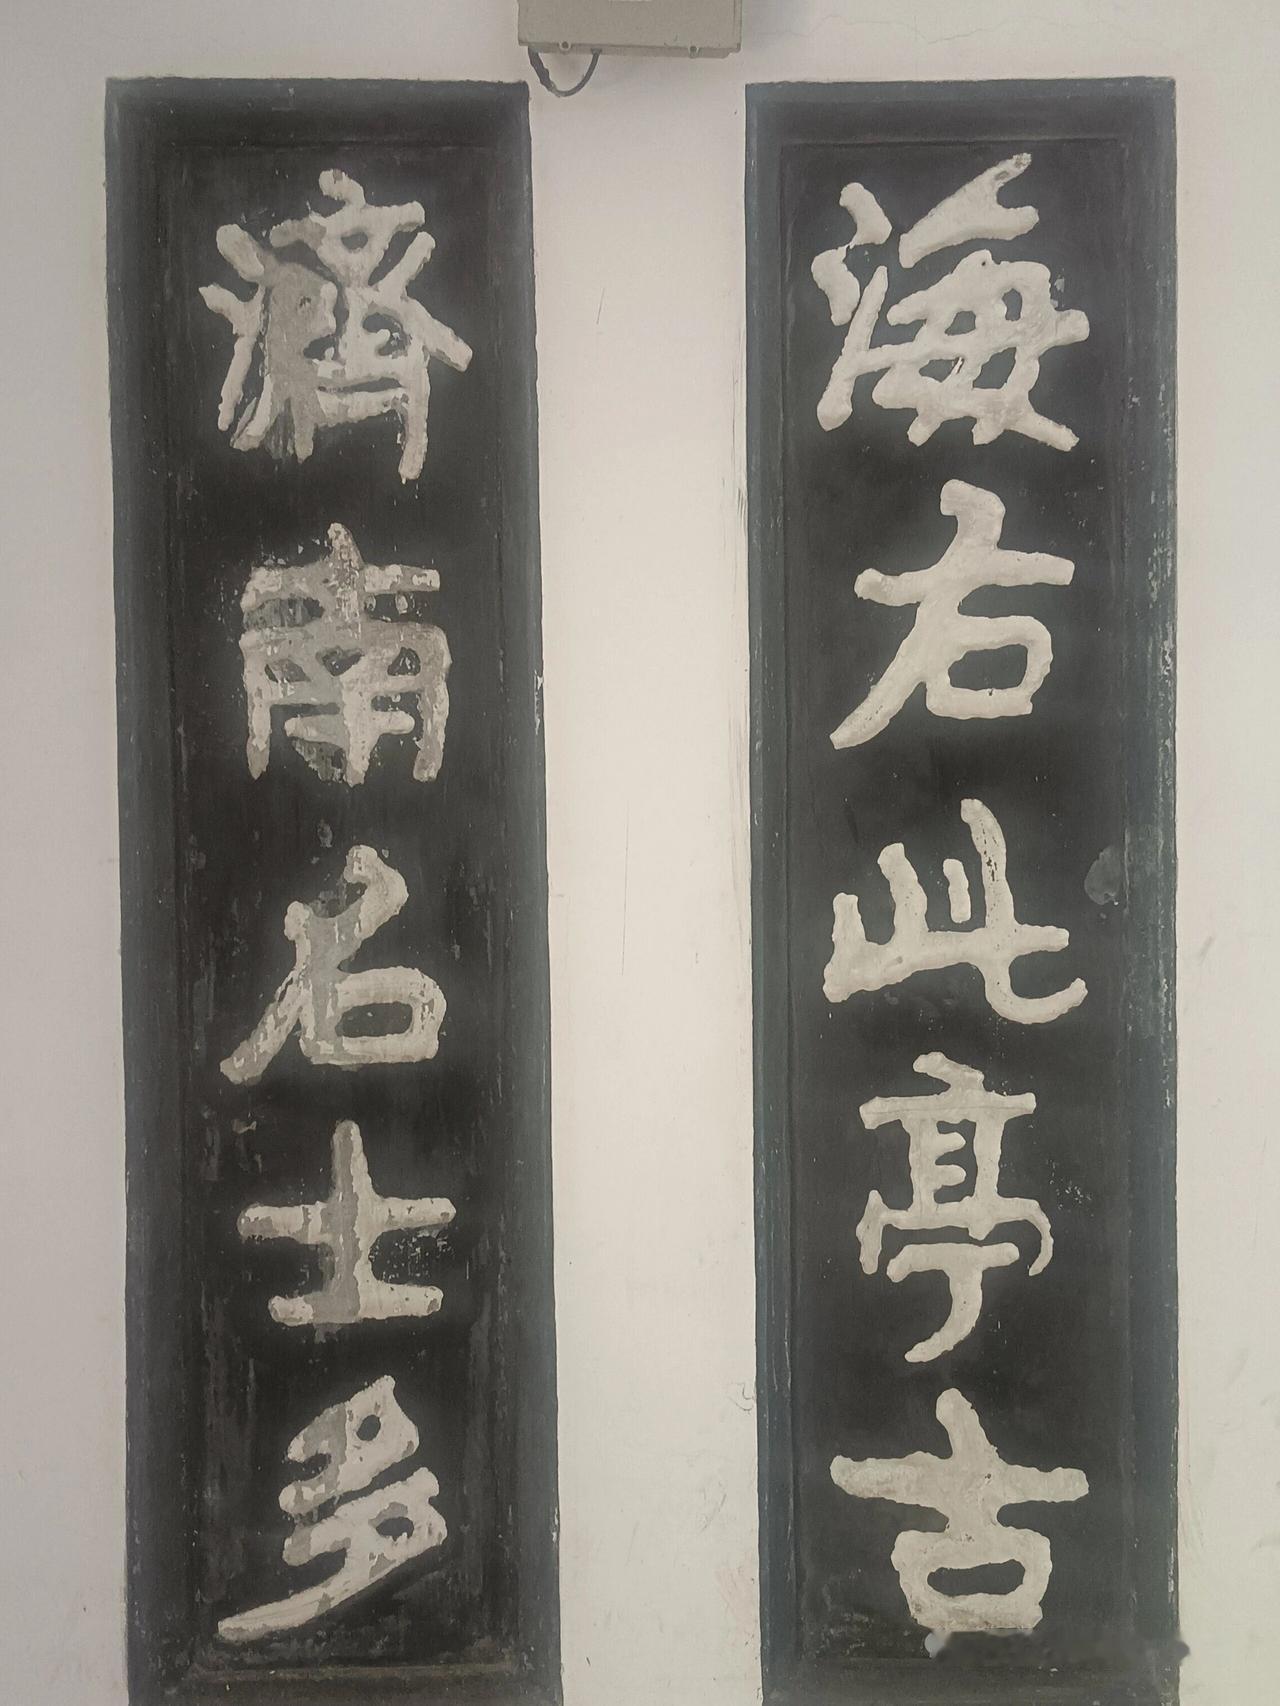 海右此亭古
濟南名士多